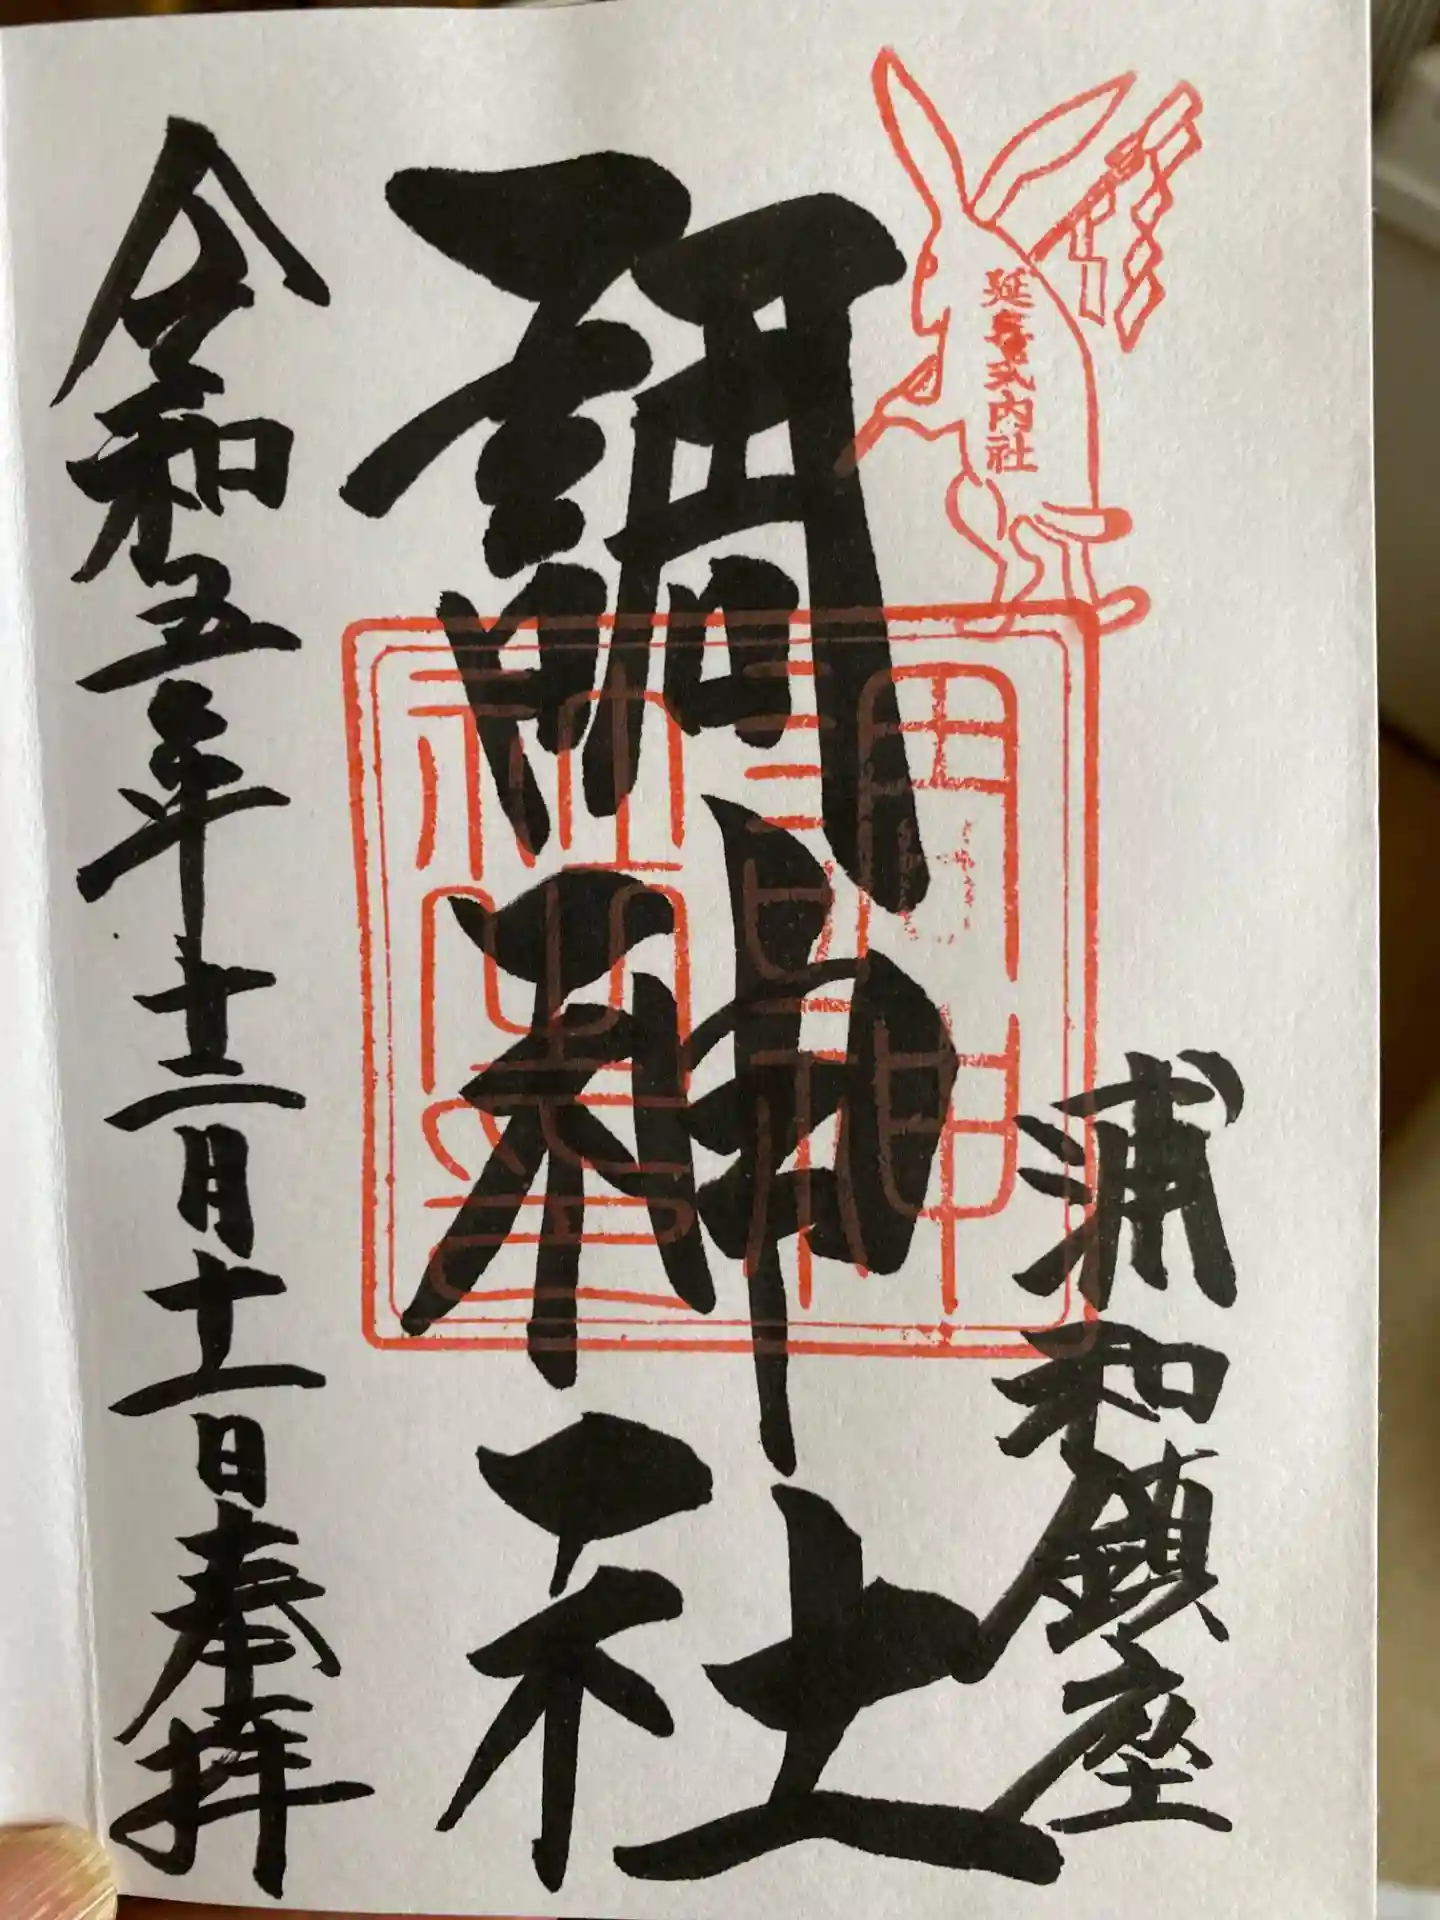 延喜式内社
浦和鎮座
調神社
調神社
令和五年十二月十一日奉拝